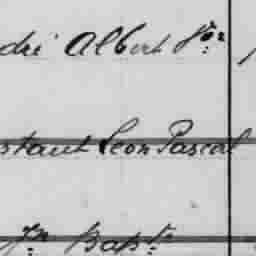 dré Albert Vor
stant Leon Pascal
Jn Bapt